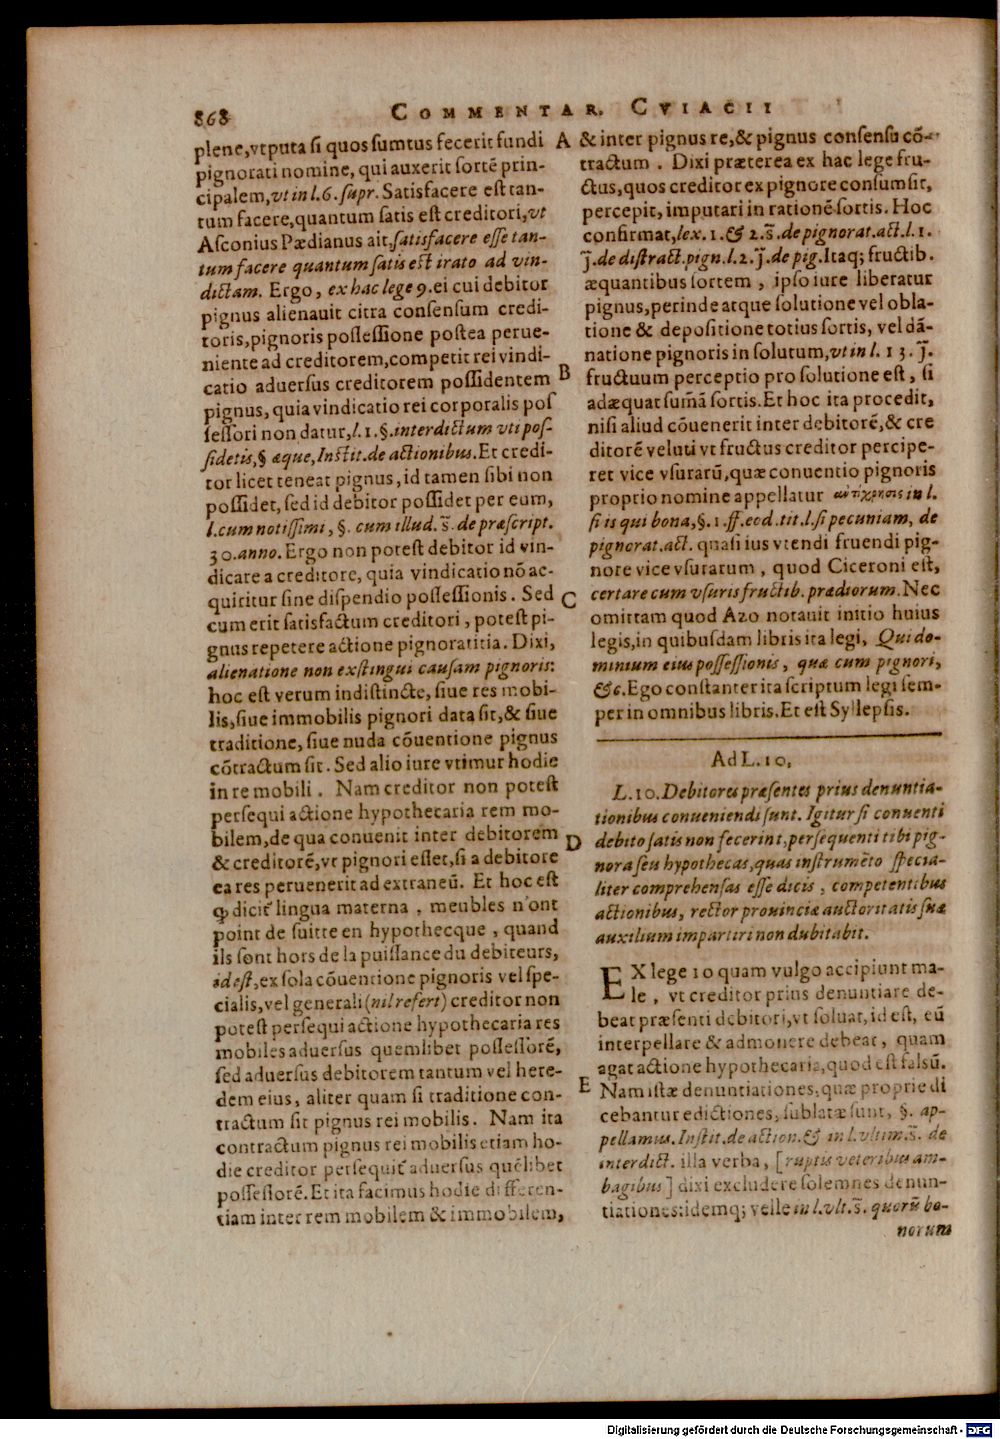 868
COMMENTAR. CVIACII
plene,vtputa ſi quos ſumtus fecerit fundi
pignorati nomine, qui auxerit ſortē prin-
cipalem,vt in l.6.ſupr. Satisfacere eſt tan-
tum facere,quantum ſatis eſt creditori,vt
Aſconius Pædianus ait,ſatisfacere eſſe tan-
tum facere quantum ſatis eſt irato ad vin-
dictam. Ergo, ex hac lege 9.ei cui debitor
pignus alienauit citra conſenſum credi-
toris,pignoris poſſeſſione poſtea perue-
niente ad creditorem,competit rei vindi-
catio aduerſus creditorem poſſidentem
pignus, quia vindicatio rei corporalis poſ
ſeſſori non datur,l.1.§.interdictum vti poſ-
ſidetis,§ æque,Inſtit.de actionibus.Et credi-
tor licet teneat pignus, id tamen ſibi non
poſſidet, ſed id debitor poſſidet per eum,
l.cum notiſſimi, §. cum illud. s̄. de præſcript.
30.anno. Ergo non poteſt debitor id vin-
dicare a creditore, quia vindicatio nō ac-
quiritur ſine diſpendio poſſeſſionis. Sed
cum erit ſatisfactum creditori, poteſt pi-
gnus repetere actione pignoratitia. Dixi,
alienatione non exſtingui cauſam pignoris:
hoc eſt verum indiſtincte, ſiue res mobi-
lis,ſiue immobilis pignori data ſit,& ſiue
traditione, ſiue nuda cōuentione pignus
cōtractum ſit. Sed alio iure vtimur hodie
in re mobili. Nam creditor non poteſt
perſequi actione hypothecaria rem mo-
bilem,de qua conuenit inter debitorem
& creditorē,vt pignori eſſet,ſi a debitore
ea res peruenerit ad extraneū. Et hoc eſt
ꝙ dicit᷑ lingua materna, meubles n'ont
point de ſuitte en hypothecque, quand
ils ſont hors de la puiſſance du debiteurs,
id eſt,ex ſola cōuentione pignoris vel ſpe-
cialis,vel generali(nil refert) creditor non
poteſt perſequi actione hypothecaria res
mobiles aduerſus quemlibet poſſeſſorē,
ſed aduerſus debitorem tantum vel here-
dem eius, aliter quam ſi traditione con-
tractum ſit pignus rei mobilis. Nam ita
contractum pignus rei mobilis etiam ho-
die creditor perſequit᷑ aduerſus quēlibet
poſſeſſorē.Et ita facimus hodie differen-
tiam inter rem mobilem & immobilem,
A
B
C
D
E
& inter pignus re,& pignus conſenſu cō-
tractum. Dixi præterea ex hac lege fru-
ctus,quos creditor ex pignore conſumſit,
percepit, imputari in rationē ſortis. Hoc
confirmat,lex.1.& 2.s̄.de pignorat.act.l.1.
j̄.de diſtract.pign.l.2.j̄.de pig.Itaq; fructib.
æquantibus ſortem, ipſo iure liberatur
pignus,perinde atque ſolutione vel obla-
tione & depoſitione totius ſortis, vel dā-
natione pignoris in ſolutum,vt in l.13.j̄.
fructuum perceptio pro ſolutione eſt, ſi
adæquat ſum̄ā ſortis.Et hoc ita procedit,
niſi aliud cōuenerit inter debitorē,& cre
ditorē veluti vt fructus creditor percipe-
ret vice vſurarū,quæ conuentio pignoris
proprio nomine appellatur ἀντίχρησις in l.
ſi is qui bona,§.1.ff.eod.tit.l.ſi pecuniam, de
pignorat.act. quaſi ius vtendi fruendi pig-
nore vice vſurarum, quod Ciceroni eſt,
certare cum vſuris fructib. prædiorum. Nec
omittam quod Azo notauit initio huius
legis,in quibuſdam libris ita legi, Qui do-
minium eius poſſeſſionis, quæ cum pignori,
&c.Ego conſtanter ita ſcriptum legi ſem-
per in omnibus libris.Et eſt Syllepſis.
Ad L.10.
L.10.Debitores præſentes prius denuntia-
tionibus conueniendi ſunt. Igitur ſi conuenti
debito ſatis non fecerint,perſequenti tibi pig-
nora ſeu hypothecas,quas inſtrumēto ſpecia-
liter comprehenſas eſſe dicis, competentibus
actionibus, rector prouinciæ auctoritatis ſuæ
auxilium impartiri non dubitabit.
EX lege 10 quam vulgo accipiunt ma-
le, vt creditor prius denuntiare de-
beat præſenti debitori,vt ſoluat,id eſt, eū
interpellare & admonere debeat, quam
agat actione hypothecaria,quod eſt falsū.
Nam iſtæ denuntiationes,quæ proprie di
cebantur edictiones, ſublatæ ſunt, §. ap-
pellamus.Inſtit.de action.& in l.vltim.s̄. de
interdict. illa verba, [ruptis veteribus am-
bagibus] dixi excludere ſolemnes denun-
tiationes:idemq; velle in l.vlt.s̄. quorū bo-
norum
Digitalisierung gefördert durch die Deutsche Forschungsgemeinschaft - DFG